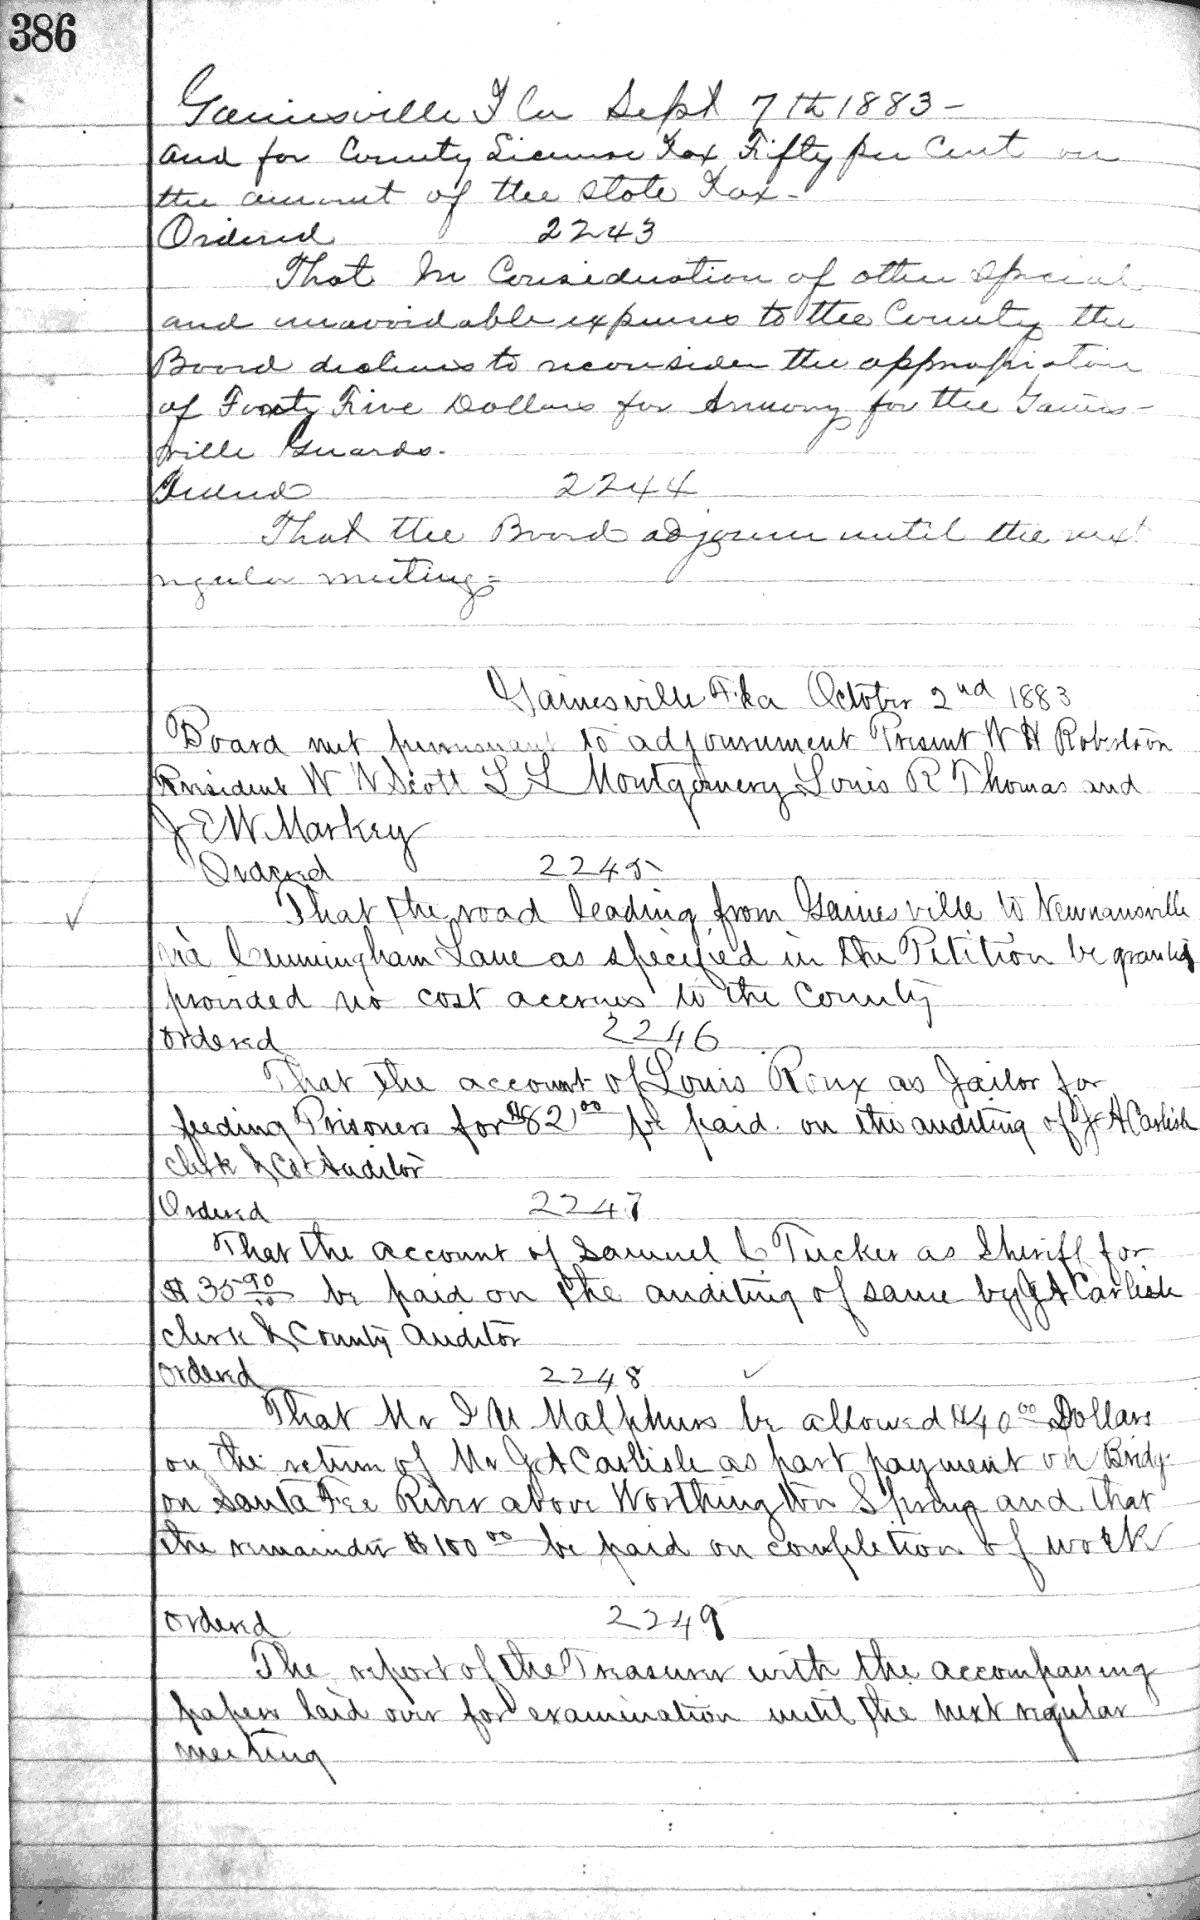 386
Gainesville Fla Sept 7th 1883-
and for County License Tax Fifty per Cent on
the amount of the State Tax-
Ordered 2243
That In Consideration of other Special
and unavoidable expenses to the County the
Board declines to reconsider the appropriation
of Forty Five Dollars for Armory for the Gaines-
ville Guards.
2244
That the Board adjourn until the next
regular meeting=
Gainesville Fla October 2nd 1883
Board met pursuant to adjournment Present W H Robertson
President W N Scott L L Montgomery Louis R Thomas and
J E W Markey
Ordered 2245
That the road leading from Gainesville to Newnansville
via Cunningham Lane as specified in the Petition be granted
provided no cost accrues to the County
Ordered 2246
That the account of Louis Roux as Jailor for
feeding Prisoners for $82 00 be paid on the auditing of J A Carlisle
Clerk & Co Auditor
Ordered 2247
That the account of Samuel C Tucker as Sheriff for
$35 90/10 be paid on the auditing of same by J A Carlisle
Clerk & County Auditor
Ordered 2248
That Mr Malphurs be allowed $40 00 Dollars
on the return of Mr J A Carlisle as part payment on Bridg
on Santa Fee River above Worthington Spring and that
the remainder $100 00 be paid on completion of work
Ordered 2249
The report of the Treasurer with the accompaning
papers laid over for examination until the next regular
meeting